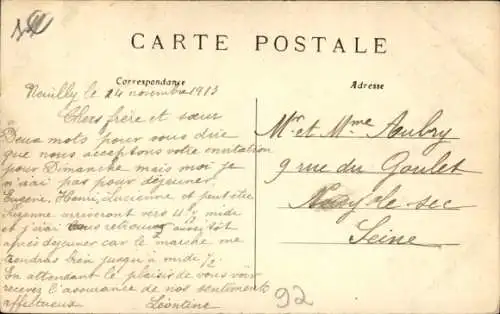 CARTE POSTALE
Correspondance
Adresse
Neuilly le 24 novembre 1913
Chers frère et sœur
Deux mots pour vous dire
que nous acceptons votre invitation
pour Dimanche mais moi je
n'ai pas pour déjeuner.
Eugène, Henri, Lucienne et peut être
Suzanne arriveront vers midi
et j'irai vous retrouver aussitôt
après déjeuner car le marché me
tiendras bien jusqu'à midi ½
En attendant le plaisir de vous voir
recevez l'assurance de nos sentiments
affectueux Léontine
Mr et Mme Aubry
9 rue du Goulet
Noisy le sec
Seine
92